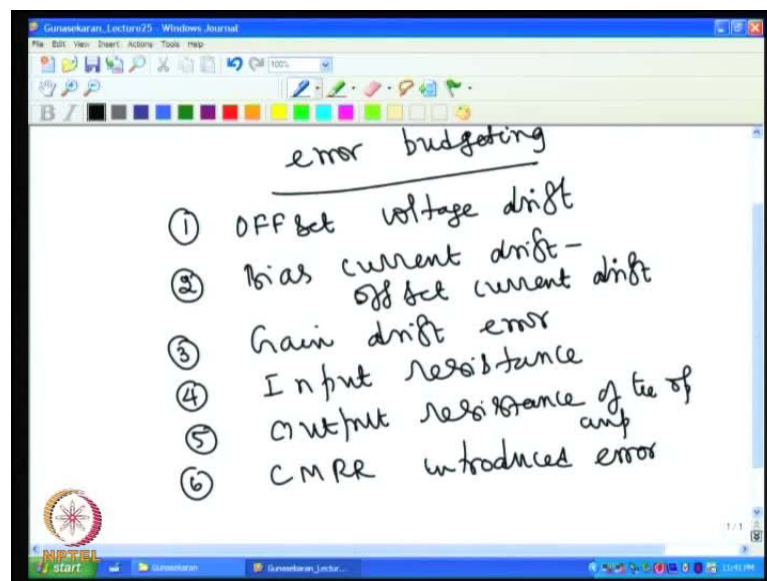 Gunasekaran_Lecture25 - Windows Journal
File Edit View Insert Actions Tools Help
100%
B I
error budgeting
① OFFset voltage drift
② Bias current drift -
offset current drift
③ Gain drift error
④ Input resistance
⑤ output resistance of the op
amp
⑥ CMRR introduces error
1/1
NPTEL
start Gunasekaran Gunasekaran_Lectur...